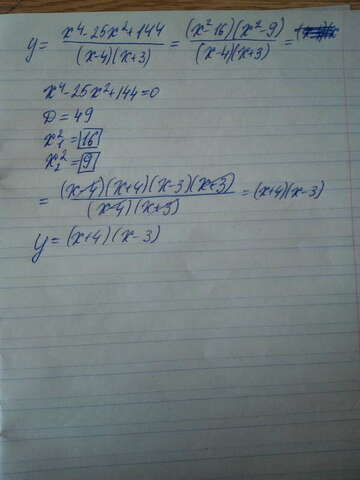 y = (x⁴-25x²+144)/((x-4)(x+3)) = ((x²-16)(x²-9))/((x-4)(x+3)) =
x⁴-25x²+144=0
D = 49
x₁² = 16
x₂² = 9
= ((x-4)(x+4)(x-3)(x+3))/((x-4)(x+3)) = (x+4)(x-3)
y = (x+4)(x-3)